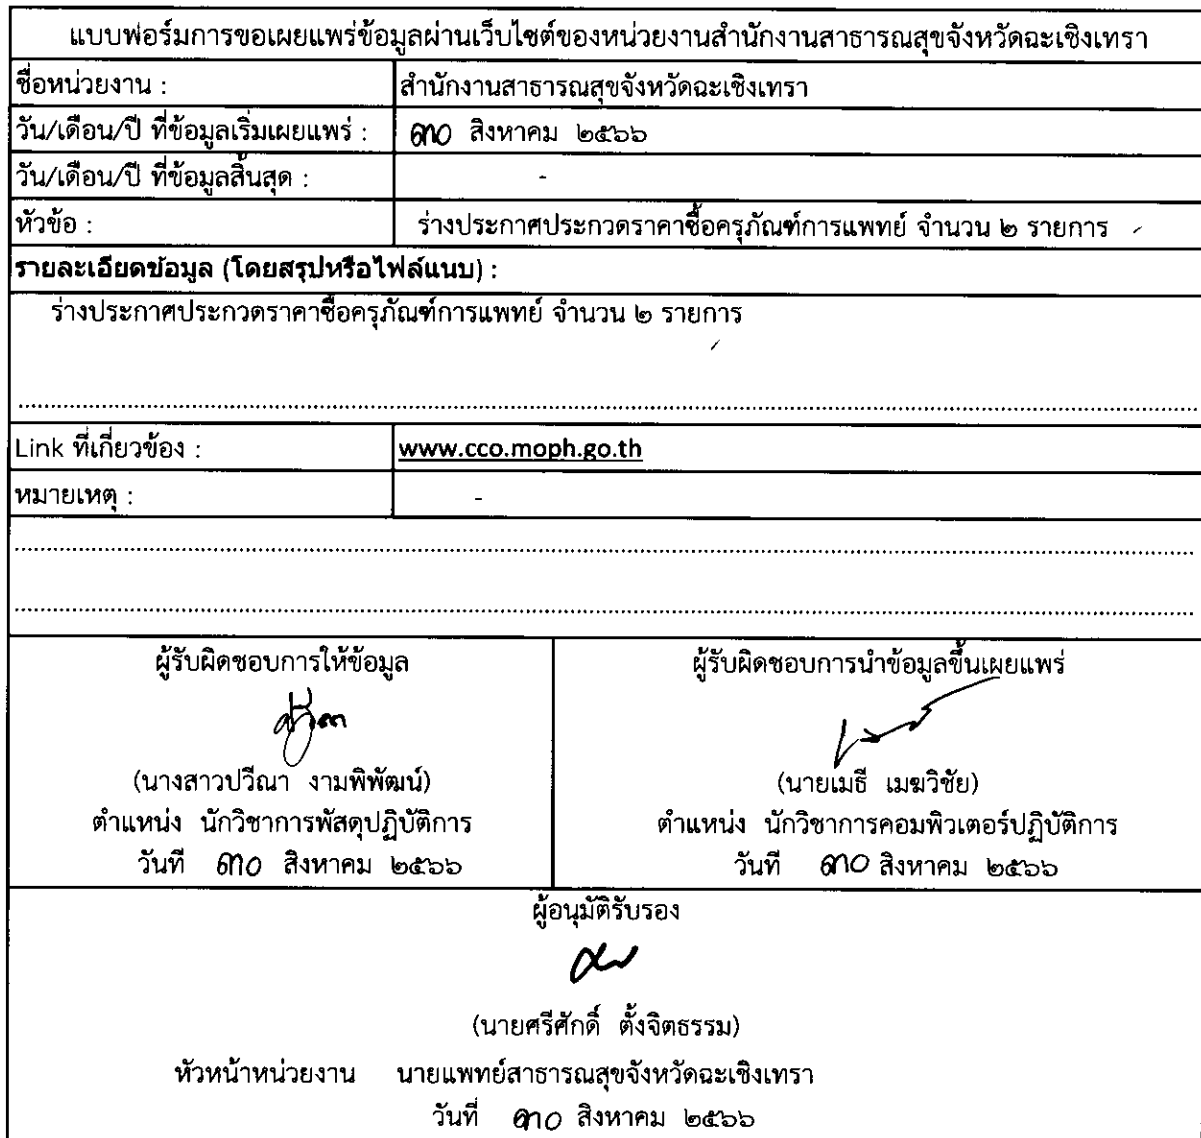 แบบฟอร์มการขอเผยแพร่ข้อมูลผ่านเว็บไซต์ของหน่วยงานสำนักงานสาธารณสุขจังหวัดฉะเชิงเทรา
ชื่อหน่วยงาน : สำนักงานสาธารณสุขจังหวัดฉะเชิงเทรา
วัน/เดือน/ปี ที่ข้อมูลเริ่มเผยแพร่ : ๓๐ สิงหาคม ๒๕๖๖
วัน/เดือน/ปี ที่ข้อมูลสิ้นสุด : -
หัวข้อ : ร่างประกาศประกวดราคาซื้อครุภัณฑ์การแพทย์ จำนวน ๒ รายการ
รายละเอียดข้อมูล (โดยสรุปหรือไฟล์แนบ) :
ร่างประกาศประกวดราคาซื้อครุภัณฑ์การแพทย์ จำนวน ๒ รายการ
Link ที่เกี่ยวข้อง : www.cco.moph.go.th
หมายเหตุ : -
ผู้รับผิดชอบการให้ข้อมูล
(นางสาวปวีณา งามพิพัฒน์)
ตำแหน่ง นักวิชาการพัสดุปฏิบัติการ
วันที่ ๓๐ สิงหาคม ๒๕๖๖
ผู้รับผิดชอบการนำข้อมูลขึ้นเผยแพร่
(นายเมธี เมฆวิชัย)
ตำแหน่ง นักวิชาการคอมพิวเตอร์ปฏิบัติการ
วันที่ ๓๐ สิงหาคม ๒๕๖๖
ผู้อนุมัติรับรอง
(นายศรีศักดิ์ ตั้งจิตธรรม)
หัวหน้าหน่วยงาน นายแพทย์สาธารณสุขจังหวัดฉะเชิงเทรา
วันที่ ๓๐ สิงหาคม ๒๕๖๖